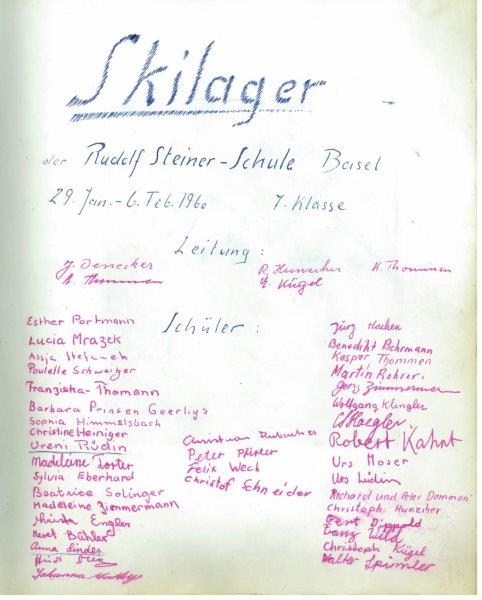 Skilager
der Rudolf Steiner-Schule Basel
29. Jan.-6. Feb. 1960 7. Klasse
Leitung:
J. Denecker R. Hunziker K. Thommen
E. Kügel
Schüler:
Esther Portmann
Lucia Mrazek
Assja
Paulette Schweizer
Franziska Thomann
Barbara Prinsen Geerligs
Sophia Himmelsbach
Christine Heiniger
Vreni Rüdin
Madeleine
Sylvia Eberhard
Beatrice Solinger
Madeleine Zimmermann
Christa Engler
Bühler
Anna Linder
Heidi
Johanna
Christian
Peter Pfister
Felix Weck
Christof Schneider
Jürg
Benedikt Behrmann
Kaspar Thommen
Martin Rohrer
Zimmermann
Wolfgang Klingler
Robert Kahrt
Urs Moser
Urs Lüdin
Richard und Peter Dammon
Christoph Hunziker
Gert Dippold
Wild
Christoph Kügel
Walter Spirmler